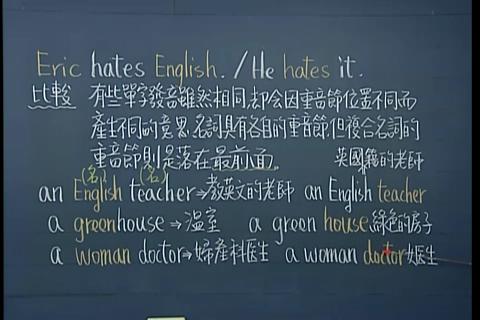 Eric hates English. / He hates it.
比較 有些單字發音雖然相同,却会因重音節位置不同而
產生不同的意思.名詞具有各自的重音節,但複合名詞的
重音節則是落在最前面.
英國籍的老師
(名) (名)
an English teacher⇒教英文的老師 an English teacher
a greenhouse⇒溫室 a green house綠色的房子
a woman doctor⇒婦產科医生 a woman doctor女医生